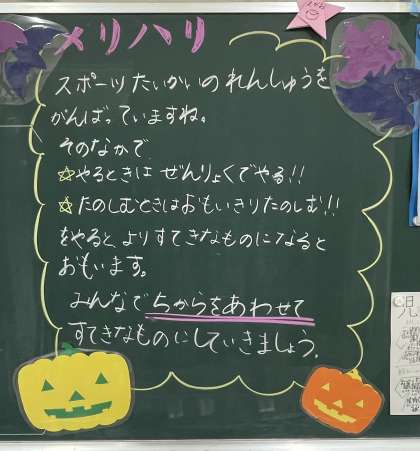 メリハリ
スポーツたいかいのれんしゅうを
がんばっていますね。
そのなかで
☆やるときは ぜんりょくでやる!!
☆たのしむときはおもいきりたのしむ!!
をやると よりすてきなものになると
おもいます。
みんなでちからをあわせて
すてきなものにしていきましょう。
児